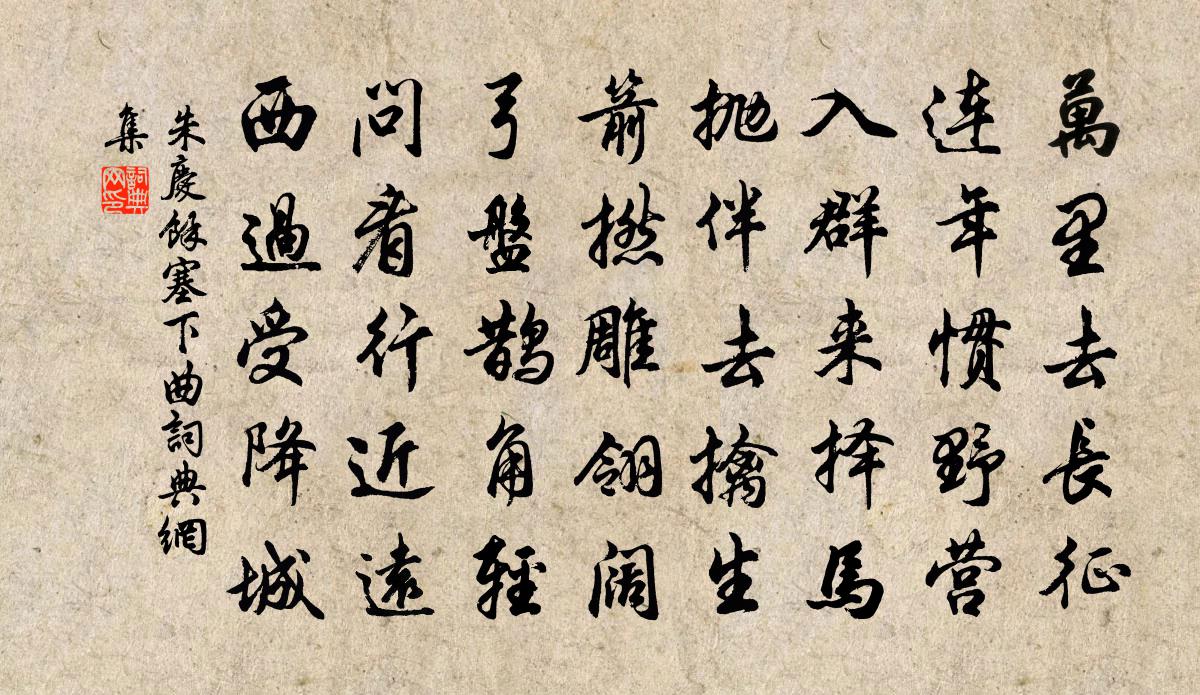 萬里去長征
连年惯野营
入群来择馬
抛伴去擒生
箭撚雕翎阔
弓盤鹊角輕
问看行近遠
西過受降城
朱慶餘塞下曲詞典網
集
詞典
网印